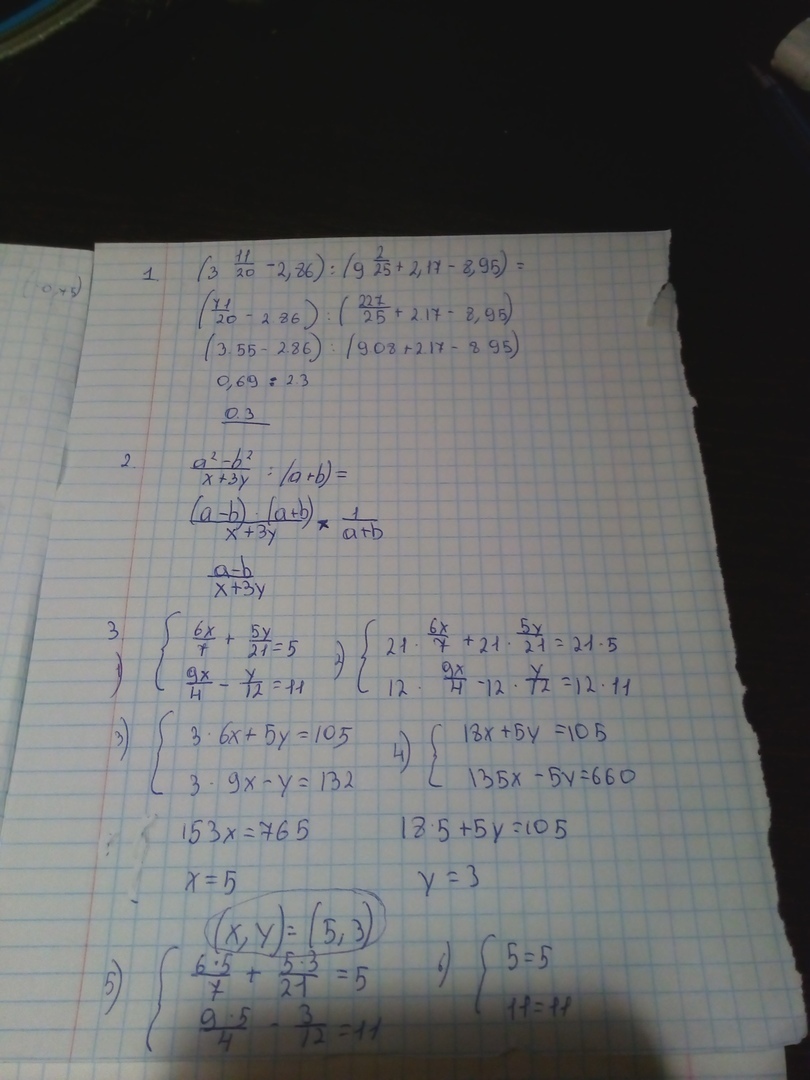 (0,45)
1. (3 11/20 - 2,86) : (9 2/25 + 2,17 - 8,95) =
(71/20 - 2.86) : (227/25 + 2.17 - 8,95)
(3.55 - 2.86) : (9.08 + 2.17 - 8.95)
0,69 : 2.3
0.3
2. (a² - b²)/(x+3y) : (a+b) =
((a-b) · (a+b))/(x+3y) × 1/(a+b)
(a-b)/(x+3y)
3.
1) { 6x/7 + 5y/21 = 5
9x/4 - y/12 = 11
2) { 21 · 6x/7 + 21 · 5y/21 = 21 · 5
12 · 9x/4 - 12 · y/12 = 12 · 11
3) { 3 · 6x + 5y = 105
3 · 9x - y = 132
4) { 18x + 5y = 105
135x - 5y = 660
153x = 765
18·5 + 5y = 105
x = 5
y = 3
(x, y) = (5, 3)
5) { 6·5/7 + 5·3/21 = 5
9·5/4 - 3/12 = 11
6) { 5 = 5
11 = 11